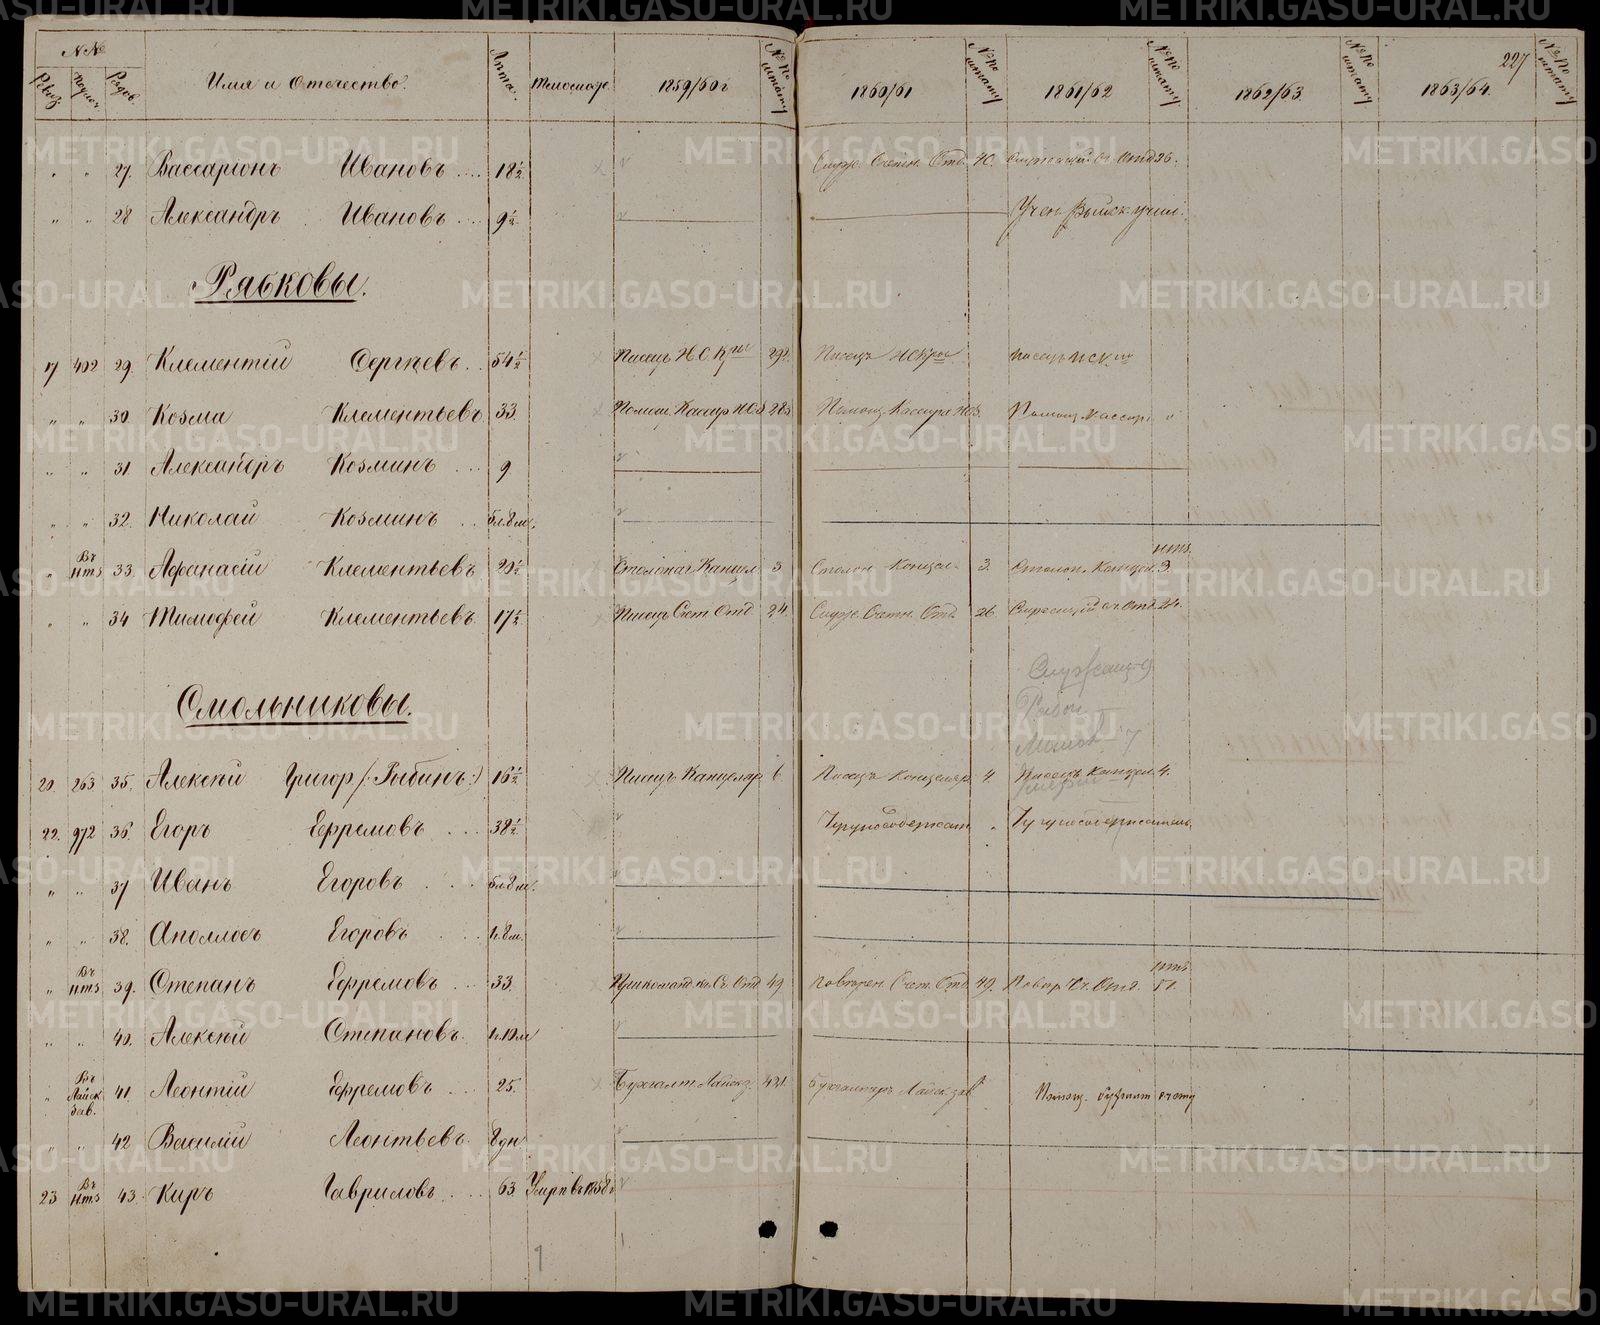 №№ 227
Ревиз. Подвор. Рядов. Имя и Отечество. Лѣта. 1859/60 г №№ по штату 1860/61 №№ по штату 1861/62 №№ по штату 1862/63. №№ по штату 1863/64. №№ по штату
" " 27. Вассаріонъ Ивановъ .... 18½ Служ. Счетн. Отд. 40. Служащій Сч. Отд 25.
" " 28 Александръ Ивановъ ... 9½ Учен. Выйск. учил.
Рябковы.
17 402 29. Клементій Сергѣевъ .. 54½ Писецъ Н С Кры 292. Писецъ НСкрои писецъ НСК
" " 30. Козма Клементьевъ 33 Помощ. Кассир НСЗ 285 Помощ Кассира НСЗ. Помощ Кассир. "
" " 31. Александръ Козминъ ... 9
" " 32. Николай Козминъ .. 5 л. 8 м.
" Въ Нтз 33. Афанасій Клементьевъ 20½ Столонач Канцел 3 Столон Канцел. 3. Столон. Канцел. Нтз. 3.
" " 34 Тимофей Клементьевъ. 17½ Писецъ Счет. Отд 24. Служ. Счетн. Отд. 26. Служащій сч. Отд. 24.
Служащ. 9
Смольниковы.
20. 263 35. Алексѣй Григор (: Рыбинъ :) 16½ Писецъ Канцеляр 6 Писецъ Канцеляр. 4. Писецъ Канцел. 4.
22. 972 36 Егоръ Ефремовъ ... 38½ Чугуносодержат. " Чугуносодержатель.
" " 37 Иванъ Егоровъ ... 5 л. 8 м.
" " 38. Аполлосъ Егоровъ ... 1 г. 8 м.
" Въ Нтз 39. Степанъ Ефремовъ .. 33. Прикоманд. къ Сч. Отд 49 Повѣрен. Счет. Отд 49. Повѣр Сч. Отд. Нтз. 51.
" " 40. Алексѣй Степановъ. 1 г. 10 м
" Въ Лайск зав. 41. Леонтій Ефремовъ .. 25. Бухгалт. Лайскз. 431. Бухгалтеръ Лайск. зав Помощ. бухгалт счету
" " 42. Василій Леонтьевъ. 8 дн.
23 Въ Нтз 43. Киръ Гавриловъ ... 63. Умеръ въ 1858 г